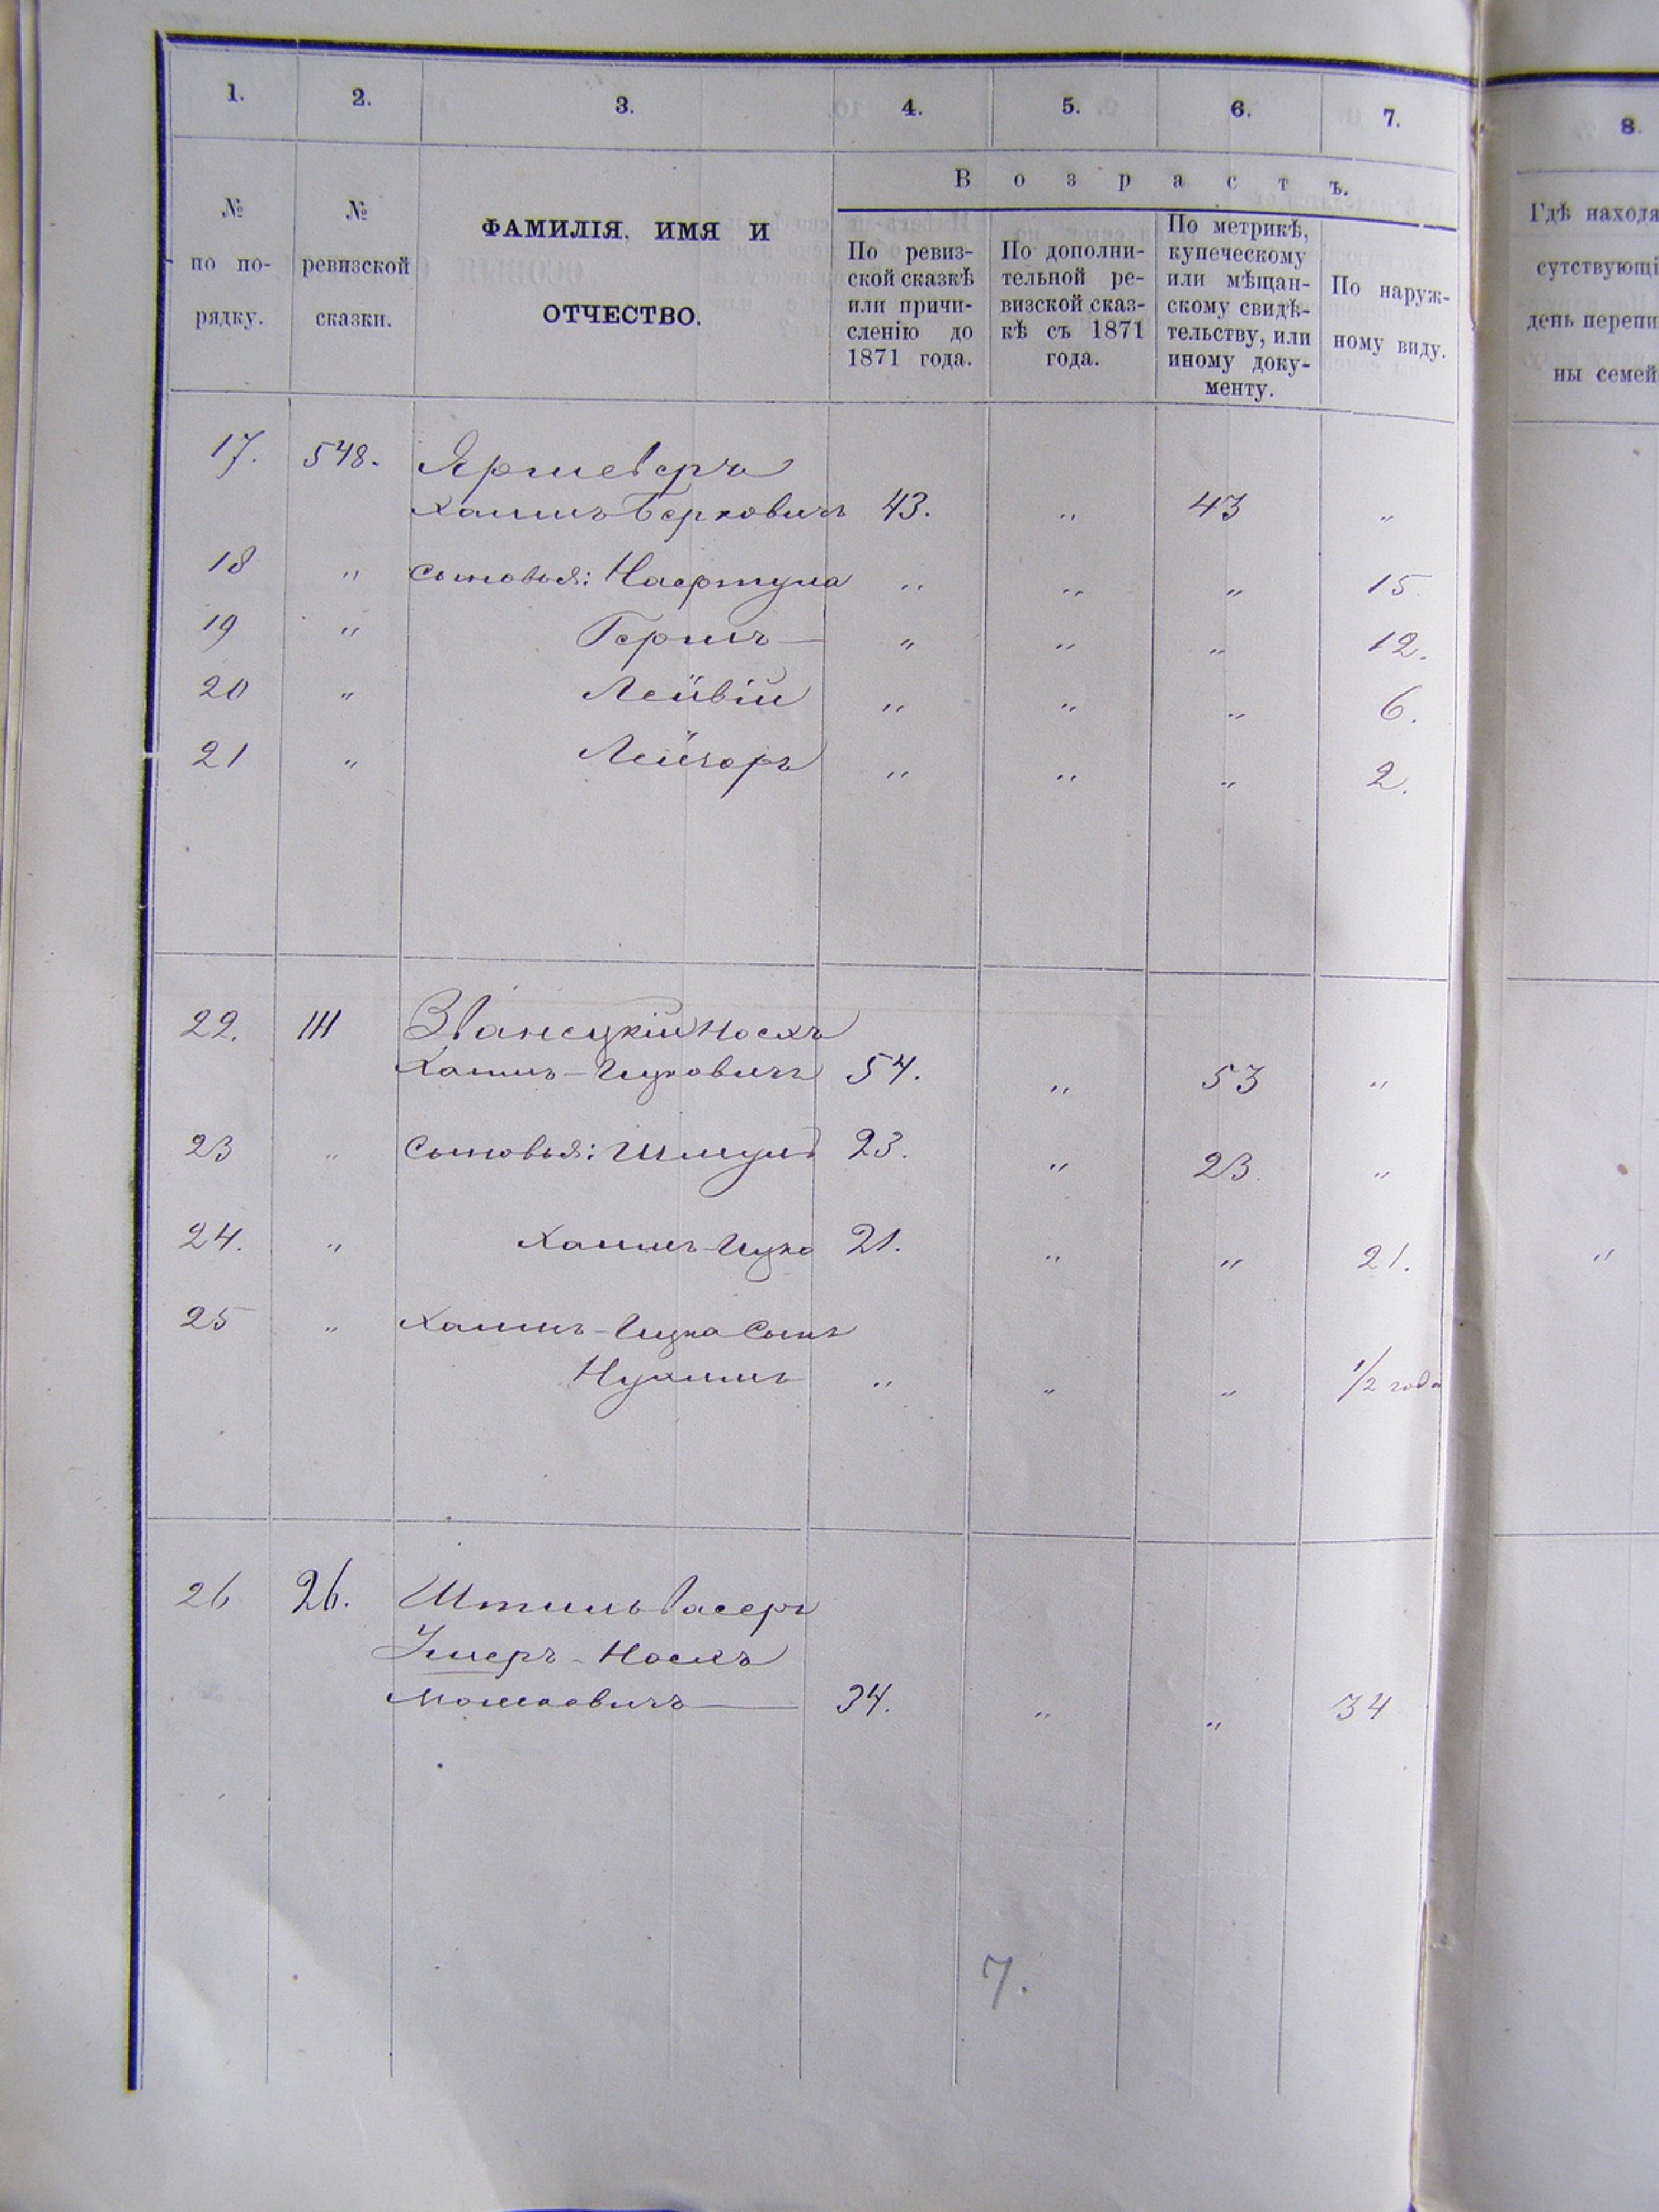 1. 2. 3. 4. 5. 6. 7. 8.
№ по по-рядку.
№ ревизской сказки.
ФАМИЛІЯ, ИМЯ И
ОТЧЕСТВО.
Возрастъ.
По ревиз-
ской сказкѣ
или причи-
сленію до
1871 года.
По дополни-
тельной ре-
визской сказ-
кѣ съ 1871
года.
По метрикѣ,
купеческому
или мѣщан-
скому свидѣ-
тельству, или
иному доку-
менту.
По наруж-
ному виду.
Гдѣ находя
сутствующі
день перепи
ны семей
17. 548.
Хаимъ Берковичъ 43. " 43 "
18 " сыновья: " " " 15
19 " Гершъ — " " " 12.
20 " Лейвій " " " 6.
21 " Лейзоръ " " " 2.
22. 111 Званецкій Іосхъ
Хаимъ-Ицковичъ 54. " 53 "
23 " сыновья: Шмуль 23. " 23 "
24. " Хаимъ-Ицко 21. " " 21. "
25 " Хаимъ-Ицка сынъ
Нухимъ " " " 1/2 года
26 26. Штильвасеръ
Умеръ - Іосхъ
Мошковичъ — 34. " " 34
7.